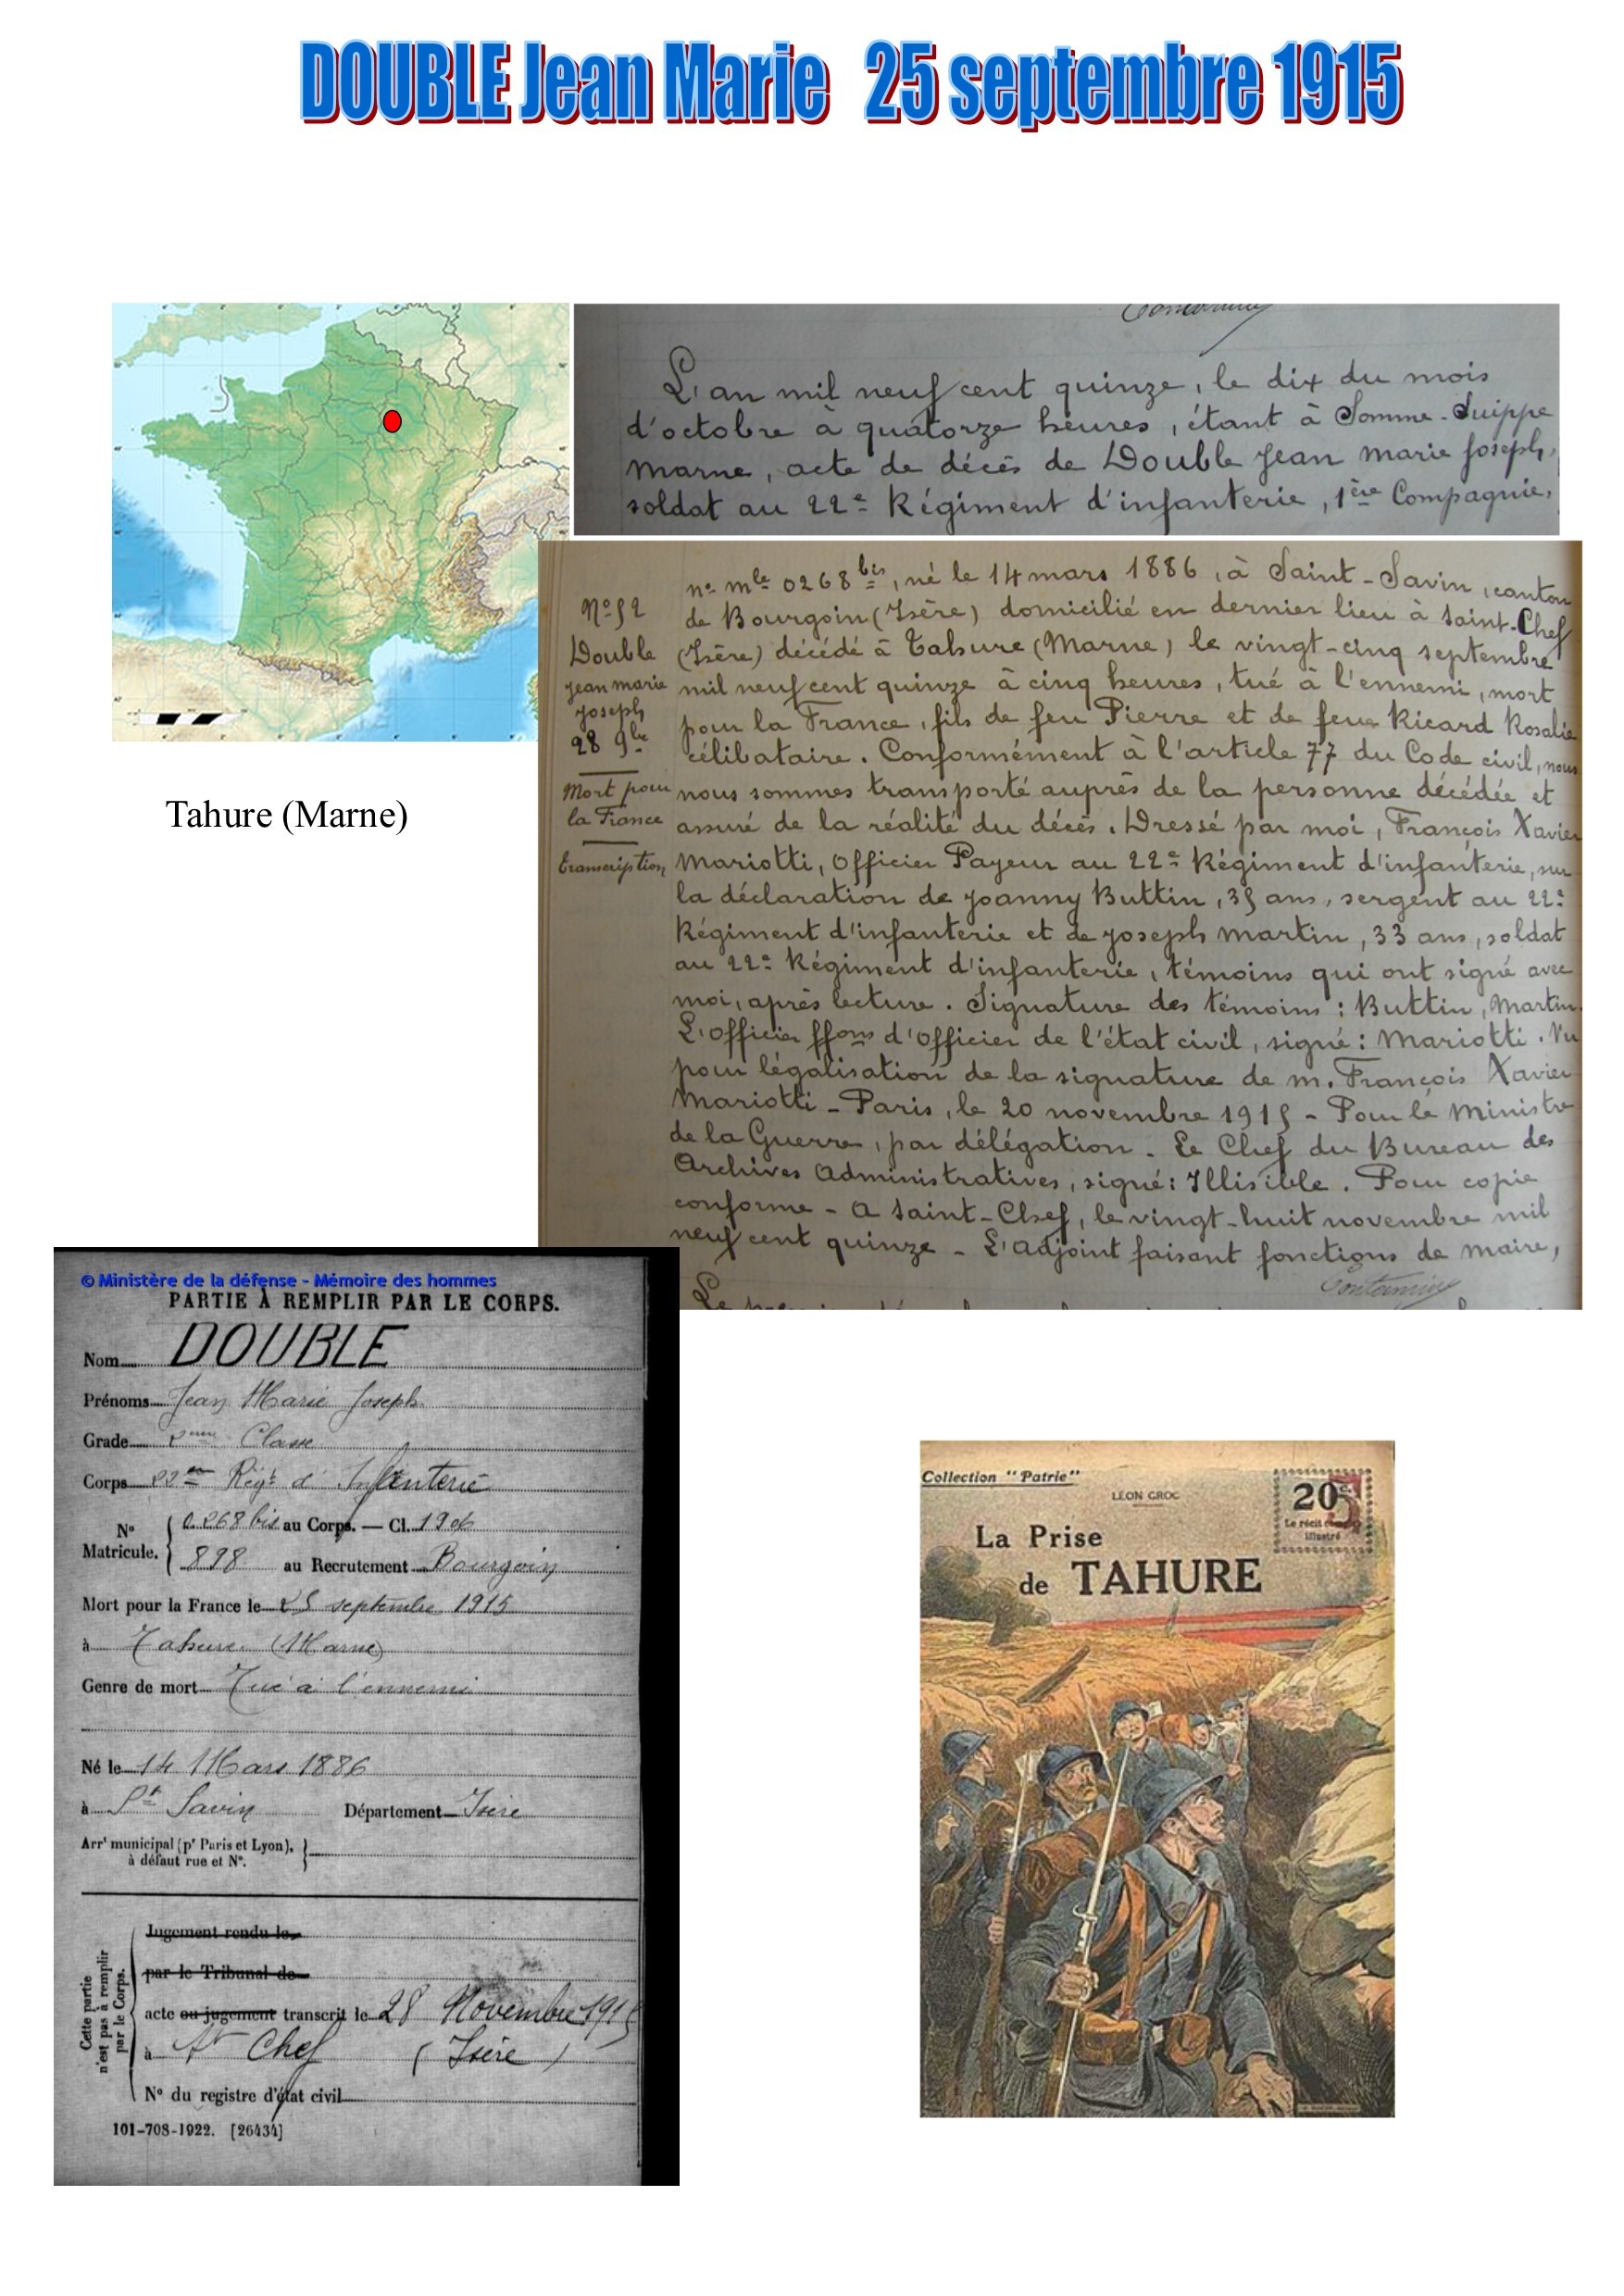 DOUBLE Jean Marie 25 septembre 1915
L'an mil neuf cent quinze, le dix du mois
d'octobre à quatorze heures, étant à Somme-Suippe
Marne, acte de décès de Double Jean Marie Joseph,
soldat au 22e Régiment d'infanterie, 1ère Compagnie,
N° 52
Double
Jean Marie
Joseph
28 9bre
Mort pour
la France
transcription
n° mle 0268 bis, né le 14 mars 1886, à Saint-Savin, canton
de Bourgoin (Isère) domicilié en dernier lieu à Saint-Chef
(Isère) décédé à Tahure (Marne) le vingt-cinq septembre
mil neuf cent quinze à cinq heures, tué à l'ennemi, mort
pour la France, fils de feu Pierre et de feue Ricard Rosalie
célibataire. Conformément à l'article 77 du Code civil, nous
nous sommes transporté auprès de la personne décédée et
assuré de la réalité du décès. Dressé par moi, François Xavier
Mariotti, Officier Payeur au 22e Régiment d'infanterie, sur
la déclaration de Joanny Buttin, 35 ans, sergent au 22e
Régiment d'infanterie et de Joseph Martin, 33 ans, soldat
au 22e Régiment d'infanterie, témoins qui ont signé avec
moi, après lecture. Signature des témoins : Buttin, Martin.
L'officier ffons d'officier de l'état civil, signé : Mariotti. Vu
pour légalisation de la signature de M. François Xavier
Mariotti - Paris, le 20 novembre 1915 - Pour le Ministre
de la Guerre, par délégation. Le Chef du Bureau des
Archives Administratives, signé : Illisible. Pour copie
conforme - A Saint-Chef, le vingt-huit novembre mil
neuf cent quinze - L'Adjoint faisant fonctions de maire,
Le
Tahure (Marne)
© Ministère de la défense - Mémoire des hommes
PARTIE À REMPLIR PAR LE CORPS.
Nom DOUBLE
Prénoms Jean Marie Joseph
Grade 2ème Classe
Corps 22ème Régt d'Infanterie
N° Matricule. 0.268 bis au Corps. — Cl. 1906
898 au Recrutement Bourgoin
Mort pour la France le 25 septembre 1915
à Tahure (Marne)
Genre de mort Tué à l'ennemi
Né le 14 Mars 1886
à St Savin Département Isère
Arrt municipal (pr Paris et Lyon),
à défaut rue et N°.
Cette partie
n'est pas à remplir
par le Corps.
Jugement rendu le
par le Tribunal de
acte ou jugement transcrit le 28 Novembre 1915
à St Chef (Isère)
N° du registre d'état civil
101-708-1922. [26434]
Collection "Patrie"
LÉON GROC
20c
Le récit complet
illustré
La Prise
de TAHURE